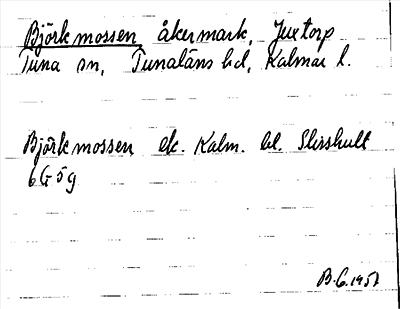 Björkmossen åkermark, Juxtorp
Tuna sn, Tunaläns hd, Kalmar l.
Björkmossen ek. Kalm. bl. Slisshult
6G5g
B.G. 1951